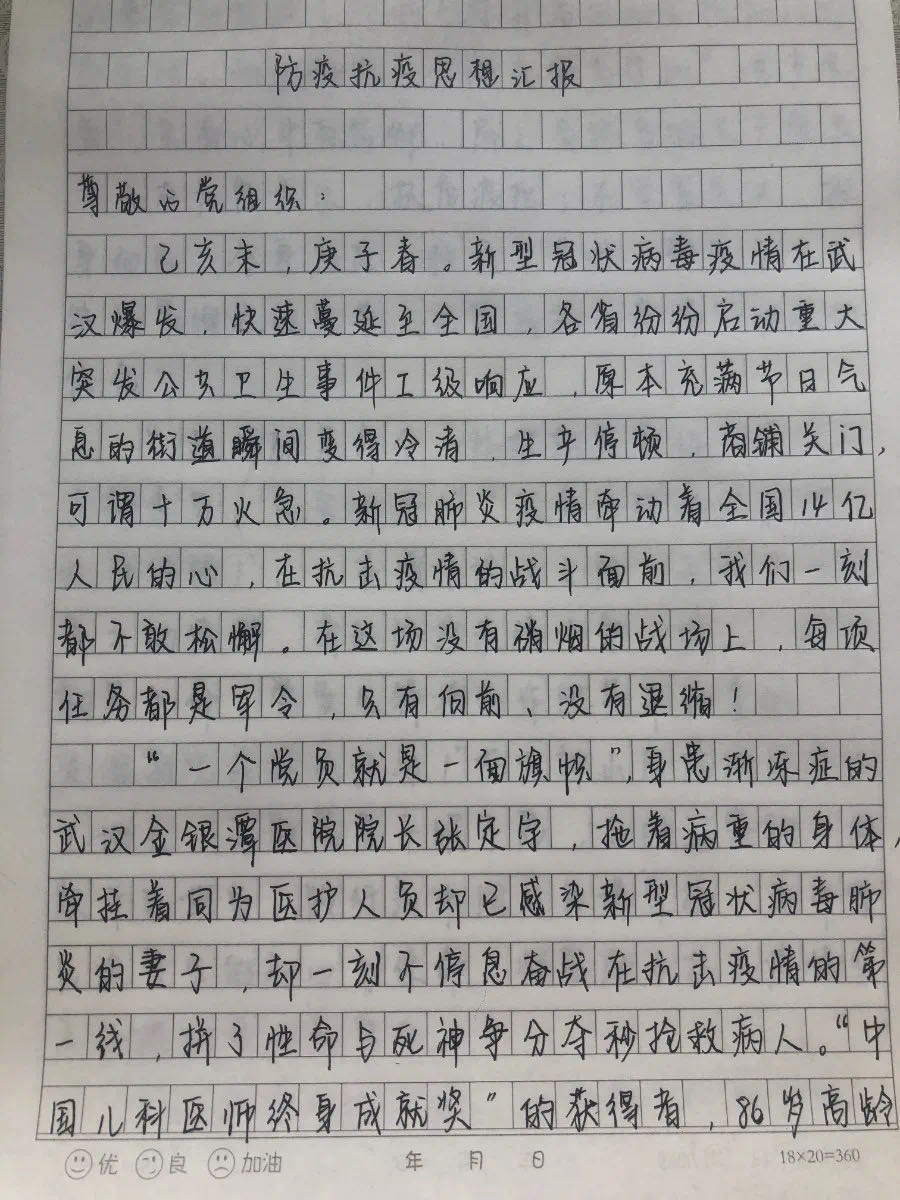 防疫抗疫思想汇报
尊敬的党组织：
己亥末，庚子春。新型冠状病毒疫情在武
汉爆发，快速蔓延至全国，各省纷纷启动重大
突发公共卫生事件工级响应，原本充满节日气
息的街道瞬间变得冷清，生产停顿，商铺关门，
可谓十万火急。新冠肺炎疫情牵动着全国14亿
人民的心，在抗击疫情的战斗面前，我们一刻
都不敢松懈。在这场没有硝烟的战场上，每项
任务都是军令，只有向前、没有退缩！
“一个党员就是一面旗帜”，身患渐冻症的
武汉金银潭医院院长张定宇，拖着病重的身体，
牵挂着同为医护人员却已感染新型冠状病毒肺
炎的妻子，却一刻不停息奋战在抗击疫情的第
一线，拼了性命与死神争分夺秒抢救病人。“中
国儿科医师终身成就奖”的获得者，86岁高龄
优 良 加油 年 月 日 18×20=360